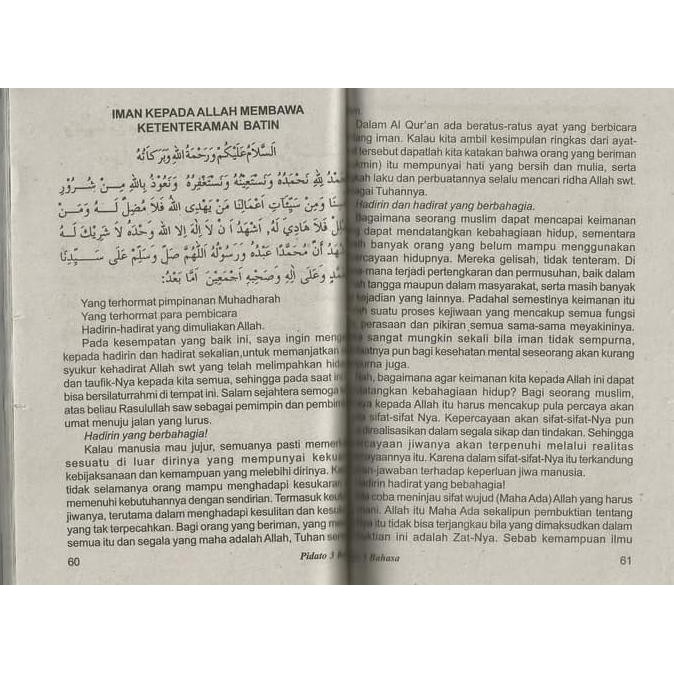 IMAN KEPADA ALLAH MEMBAWA
KETENTERAMAN BATIN
اَلسَّلَامُ عَلَيْكُمْ وَرَحْمَةُ اللهِ وَبَرَكَاتُهُ
لِلّٰهِ نَحْمَدُهُ وَنَسْتَعِيْنُهُ وَنَسْتَغْفِرُهُ وَنَعُوْذُ بِاللهِ مِنْ شُرُوْرِ
وَمِنْ سَيِّئَاتِ اَعْمَالِنَا مَنْ يَهْدِى اللهُ فَلَا مُضِلَّ لَهُ وَمَنْ
فَلَا هَادِيَ لَهُ، اَشْهَدُ اَنْ لَا اِلٰهَ اِلَّا اللهُ وَحْدَهُ لَا شَرِيْكَ لَهُ
اَنَّ مُحَمَّدًا عَبْدُهُ وَرَسُوْلُهُ اَللّٰهُمَّ صَلِّ وَسَلِّمْ عَلَى سَيِّدِنَا
وَعَلَى اٰلِهِ وَصَحْبِهِ اَجْمَعِيْنَ اَمَّا بَعْدُ:
Yang terhormat pimpinanan Muhadharah
Yang terhormat para pembicara
Hadirin-hadirat yang dimuliakan Allah.
Pada kesempatan yang baik ini, saya ingin
kepada hadirin dan hadirat sekalian,untuk memanjatkan
syukur kehadirat Allah swt yang telah melimpahkan
dan taufik-Nya kepada kita semua, sehingga pada saat ini
bisa bersilaturrahmi di tempat ini. Salam sejahtera semoga
atas beliau Rasulullah saw sebagai pemimpin dan
umat menuju jalan yang lurus.
Hadirin yang berbahagia!
Kalau manusia mau jujur, semuanya pasti
sesuatu di luar dirinya yang mempunyai
kebijaksanaan dan kemampuan yang melebihi dirinya.
tidak selamanya orang mampu menghadapi kesukaran
memenuhi kebutuhannya dengan sendirian. Termasuk
jiwanya, terutama dalam menghadapi kesulitan dan
yang tak terpecahkan. Bagi orang yang beriman, yang
semua itu dan segala yang maha adalah Allah, Tuhan
60
Pidato 3
Dalam Al Qur'an ada beratus-ratus ayat yang berbicara
iman. Kalau kita ambil kesimpulan ringkas dari ayat-
tersebut dapatlah kita katakan bahwa orang yang beriman
itu mempunyai hati yang bersih dan mulia, serta
laku dan perbuatannya selalu mencari ridha Allah swt.
Tuhannya.
Hadirin dan hadirat yang berbahagia.
Bagaimana seorang muslim dapat mencapai keimanan
dapat mendatangkan kebahagiaan hidup, sementara
banyak orang yang belum mampu menggunakan
hidupnya. Mereka gelisah, tidak tenteram. Di
terjadi pertengkaran dan permusuhan, baik dalam
tangga maupun dalam masyarakat, serta masih banyak
kejadian yang lainnya. Padahal semestinya keimanan itu
suatu proses kejiwaan yang mencakup semua fungsi
perasaan dan pikiran semua sama-sama meyakininya.
sangat mungkin sekali bila iman tidak sempurna,
pun bagi kesehatan mental seseorang akan kurang
juga.
bagaimana agar keimanan kita kepada Allah ini dapat
kebahagiaan hidup? Bagi seorang muslim,
kepada Allah itu harus mencakup pula percaya akan
sifat-sifat Nya. Kepercayaan akan sifat-sifat-Nya pun
direalisasikan dalam segala sikap dan tindakan. Sehingga
jiwanya akan terpenuhi melalui realitas
itu. Karena dalam sifat-sifat-Nya itu terkandung
terhadap keperluan jiwa manusia.
hadirat yang bebahagia!
coba meninjau sifat wujud (Maha Ada) Allah yang harus
Allah itu Maha Ada sekalipun pembuktian tentang
itu tidak bisa terjangkau bila yang dimaksudkan dalam
ini adalah Zat-Nya. Sebab kemampuan ilmu
Bahasa
61